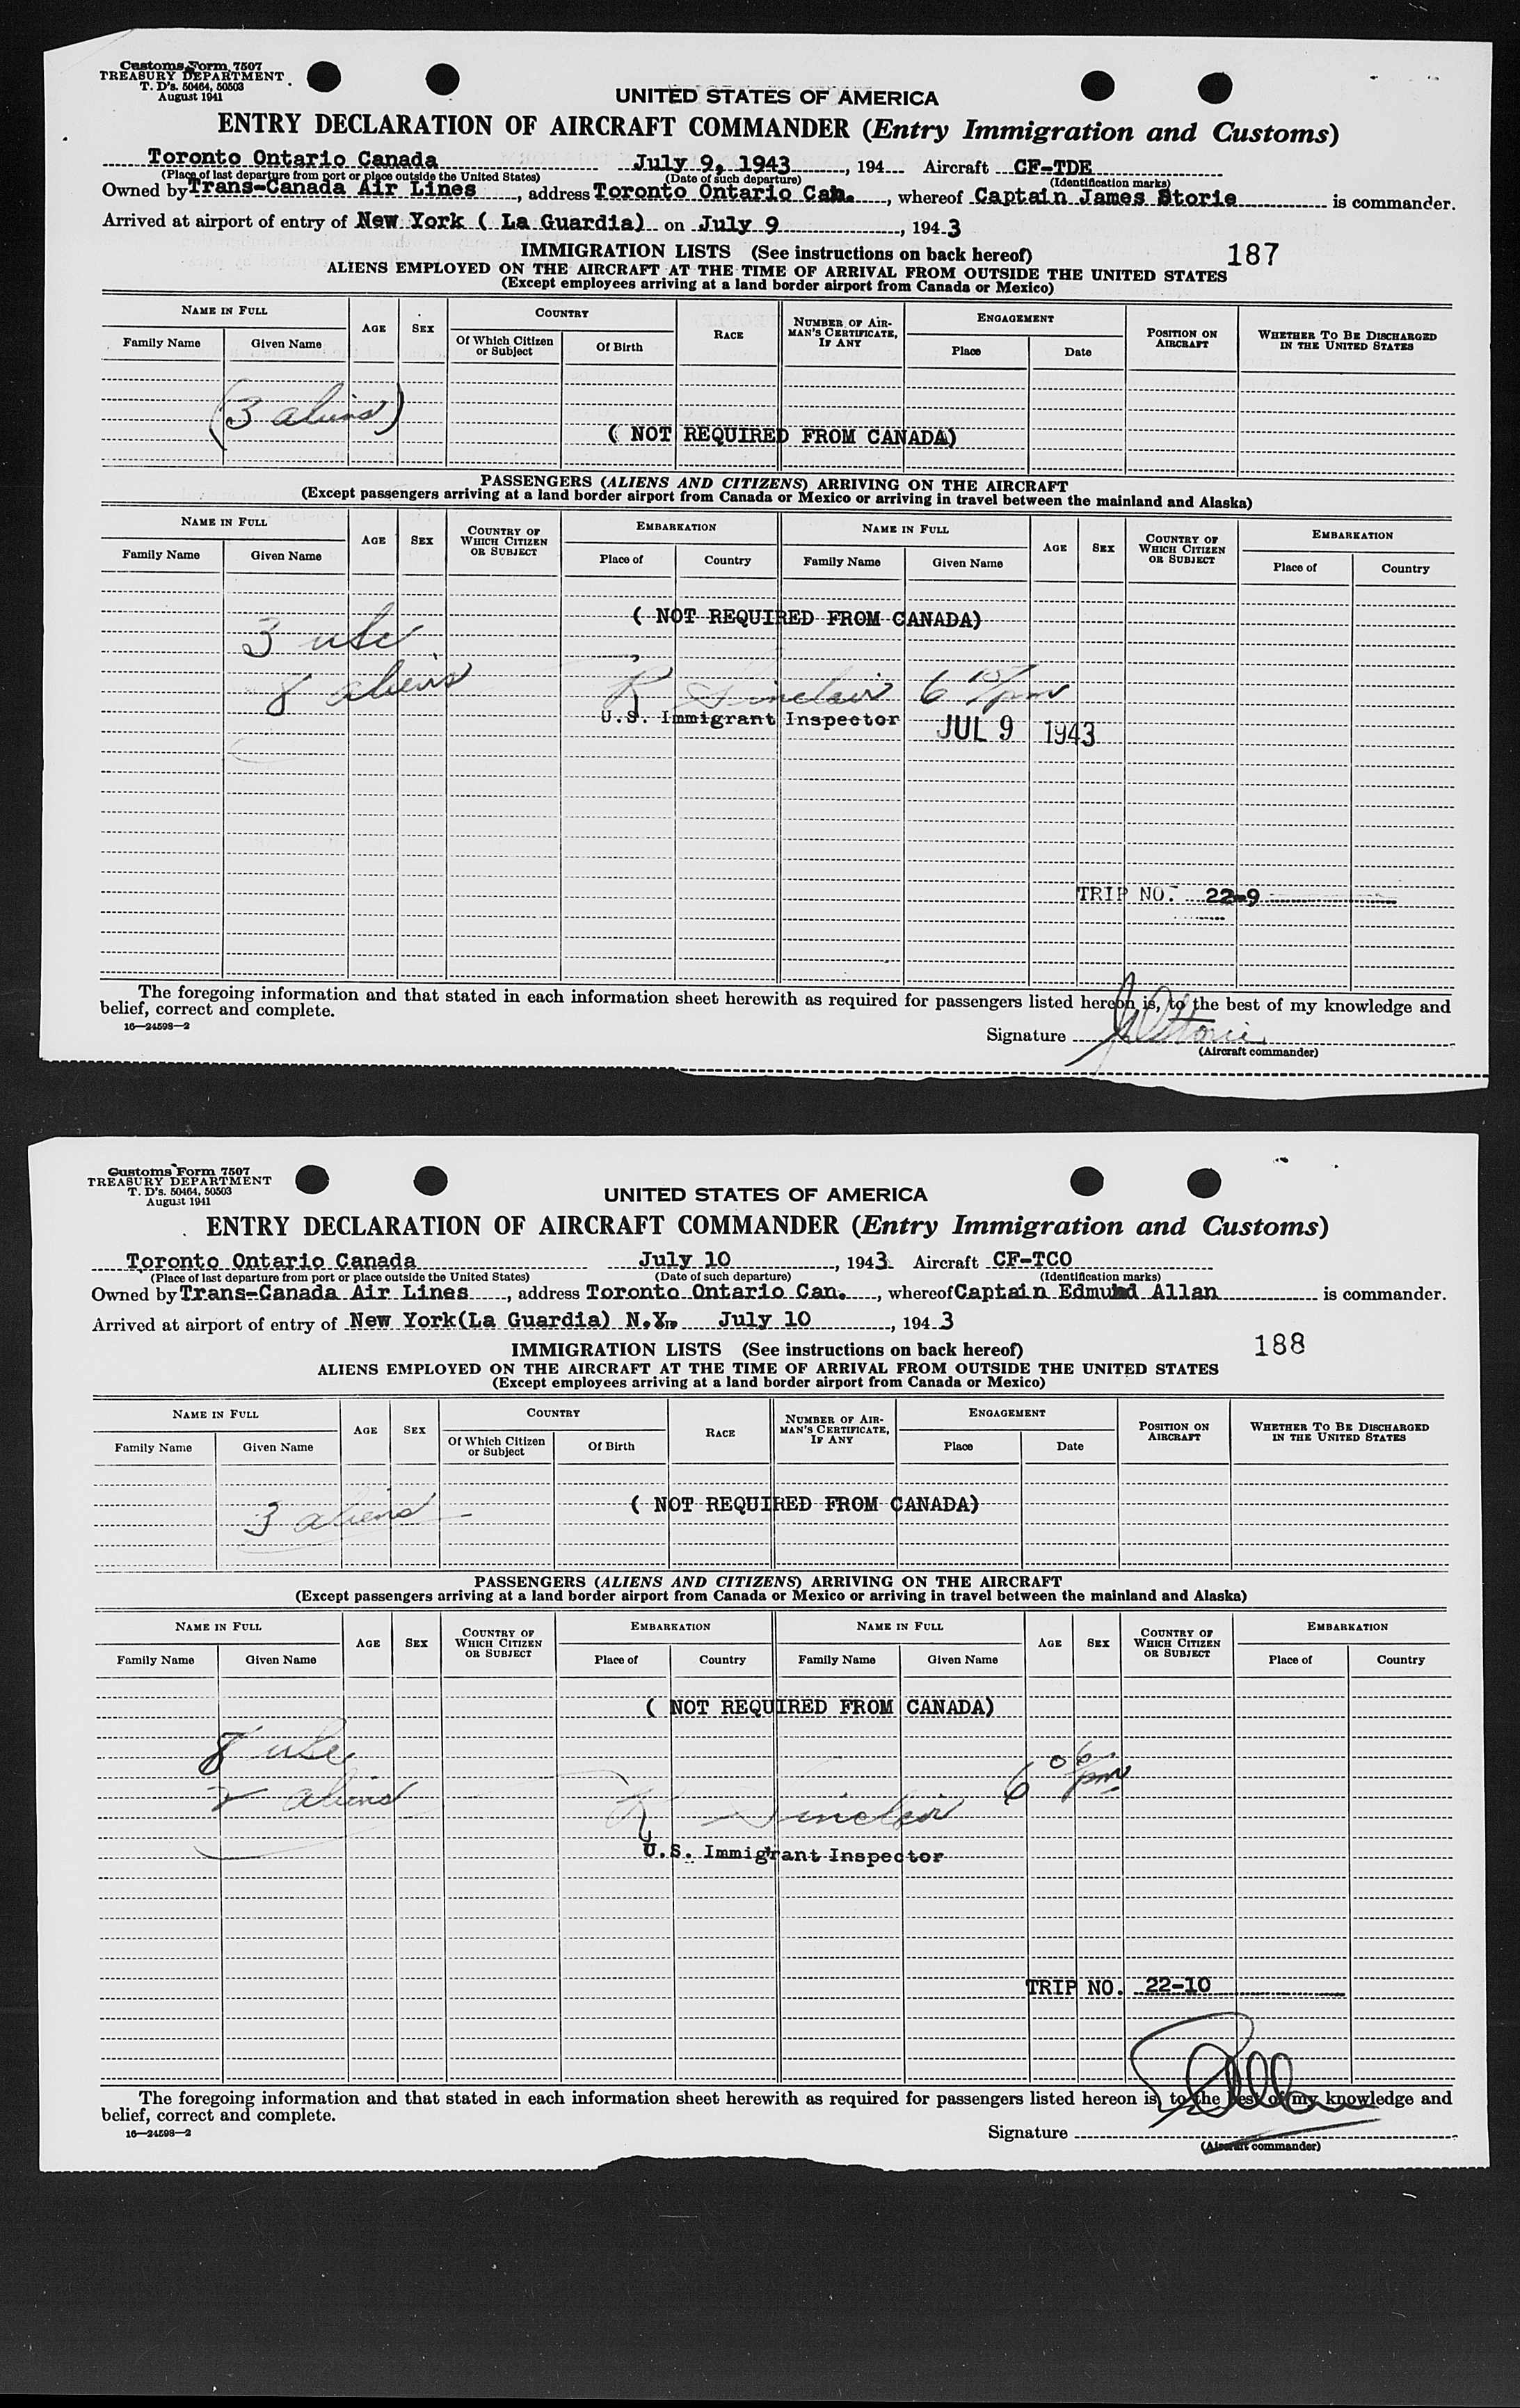 Customs Form 7507
TREASURY DEPARTMENT
T. D's. 50464, 50503
August 1941
UNITED STATES OF AMERICA
ENTRY DECLARATION OF AIRCRAFT COMMANDER (Entry Immigration and Customs)
Toronto Ontario Canada July 9, 1943, 194 Aircraft CF-TDE
(Place of last departure from port or place outside the United States) (Date of such departure) (Identification marks)
Owned by Trans-Canada Air Lines, address Toronto Ontario Can., whereof Captain James Storie is commander.
Arrived at airport of entry of New York ( La Guardia) on July 9, 1943
IMMIGRATION LISTS (See instructions on back hereof) 187
ALIENS EMPLOYED ON THE AIRCRAFT AT THE TIME OF ARRIVAL FROM OUTSIDE THE UNITED STATES
(Except employees arriving at a land border airport from Canada or Mexico)
NAME IN FULL AGE SEX COUNTRY RACE NUMBER OF AIRMAN'S CERTIFICATE, IF ANY ENGAGEMENT POSITION ON AIRCRAFT WHETHER TO BE DISCHARGED IN THE UNITED STATES
Family Name Given Name Of Which Citizen or Subject Of Birth Place Date
(3 aliens)
( NOT REQUIRED FROM CANADA)
PASSENGERS (ALIENS AND CITIZENS) ARRIVING ON THE AIRCRAFT
(Except passengers arriving at a land border airport from Canada or Mexico or arriving in travel between the mainland and Alaska)
NAME IN FULL AGE SEX COUNTRY OF WHICH CITIZEN OR SUBJECT EMBARKATION NAME IN FULL AGE SEX COUNTRY OF WHICH CITIZEN OR SUBJECT EMBARKATION
Family Name Given Name Place of Country Family Name Given Name Place of Country
( NOT REQUIRED FROM CANADA)
3 usc
8 aliens R Sinclair 6 pm
U.S. Immigrant Inspector JUL 9 1943
TRIP NO. 22-9
The foregoing information and that stated in each information sheet herewith as required for passengers listed hereon is, to the best of my knowledge and
belief, correct and complete.
16—24598—2
Signature Storie
(Aircraft commander)
Customs Form 7507
TREASURY DEPARTMENT
T. D's. 50464, 50503
August 1941
UNITED STATES OF AMERICA
ENTRY DECLARATION OF AIRCRAFT COMMANDER (Entry Immigration and Customs)
Toronto Ontario Canada July 10, 1943 Aircraft CF-TCO
(Place of last departure from port or place outside the United States) (Date of such departure) (Identification marks)
Owned by Trans-Canada Air Lines, address Toronto Ontario Can., whereof Captain Edmund Allan is commander.
Arrived at airport of entry of New York(La Guardia) N.Y. July 10, 1943
IMMIGRATION LISTS (See instructions on back hereof) 188
ALIENS EMPLOYED ON THE AIRCRAFT AT THE TIME OF ARRIVAL FROM OUTSIDE THE UNITED STATES
(Except employees arriving at a land border airport from Canada or Mexico)
NAME IN FULL AGE SEX COUNTRY RACE NUMBER OF AIRMAN'S CERTIFICATE, IF ANY ENGAGEMENT POSITION ON AIRCRAFT WHETHER TO BE DISCHARGED IN THE UNITED STATES
Family Name Given Name Of Which Citizen or Subject Of Birth Place Date
( NOT REQUIRED FROM CANADA)
3 aliens
PASSENGERS (ALIENS AND CITIZENS) ARRIVING ON THE AIRCRAFT
(Except passengers arriving at a land border airport from Canada or Mexico or arriving in travel between the mainland and Alaska)
NAME IN FULL AGE SEX COUNTRY OF WHICH CITIZEN OR SUBJECT EMBARKATION NAME IN FULL AGE SEX COUNTRY OF WHICH CITIZEN OR SUBJECT EMBARKATION
Family Name Given Name Place of Country Family Name Given Name Place of Country
( NOT REQUIRED FROM CANADA)
8 usc
2 aliens R Sinclair 6 06 pm
U.S. Immigrant Inspector
TRIP NO. 22-10
The foregoing information and that stated in each information sheet herewith as required for passengers listed hereon is, to the best of my knowledge and
belief, correct and complete.
16—24598—2
Signature Allan
(Aircraft commander)